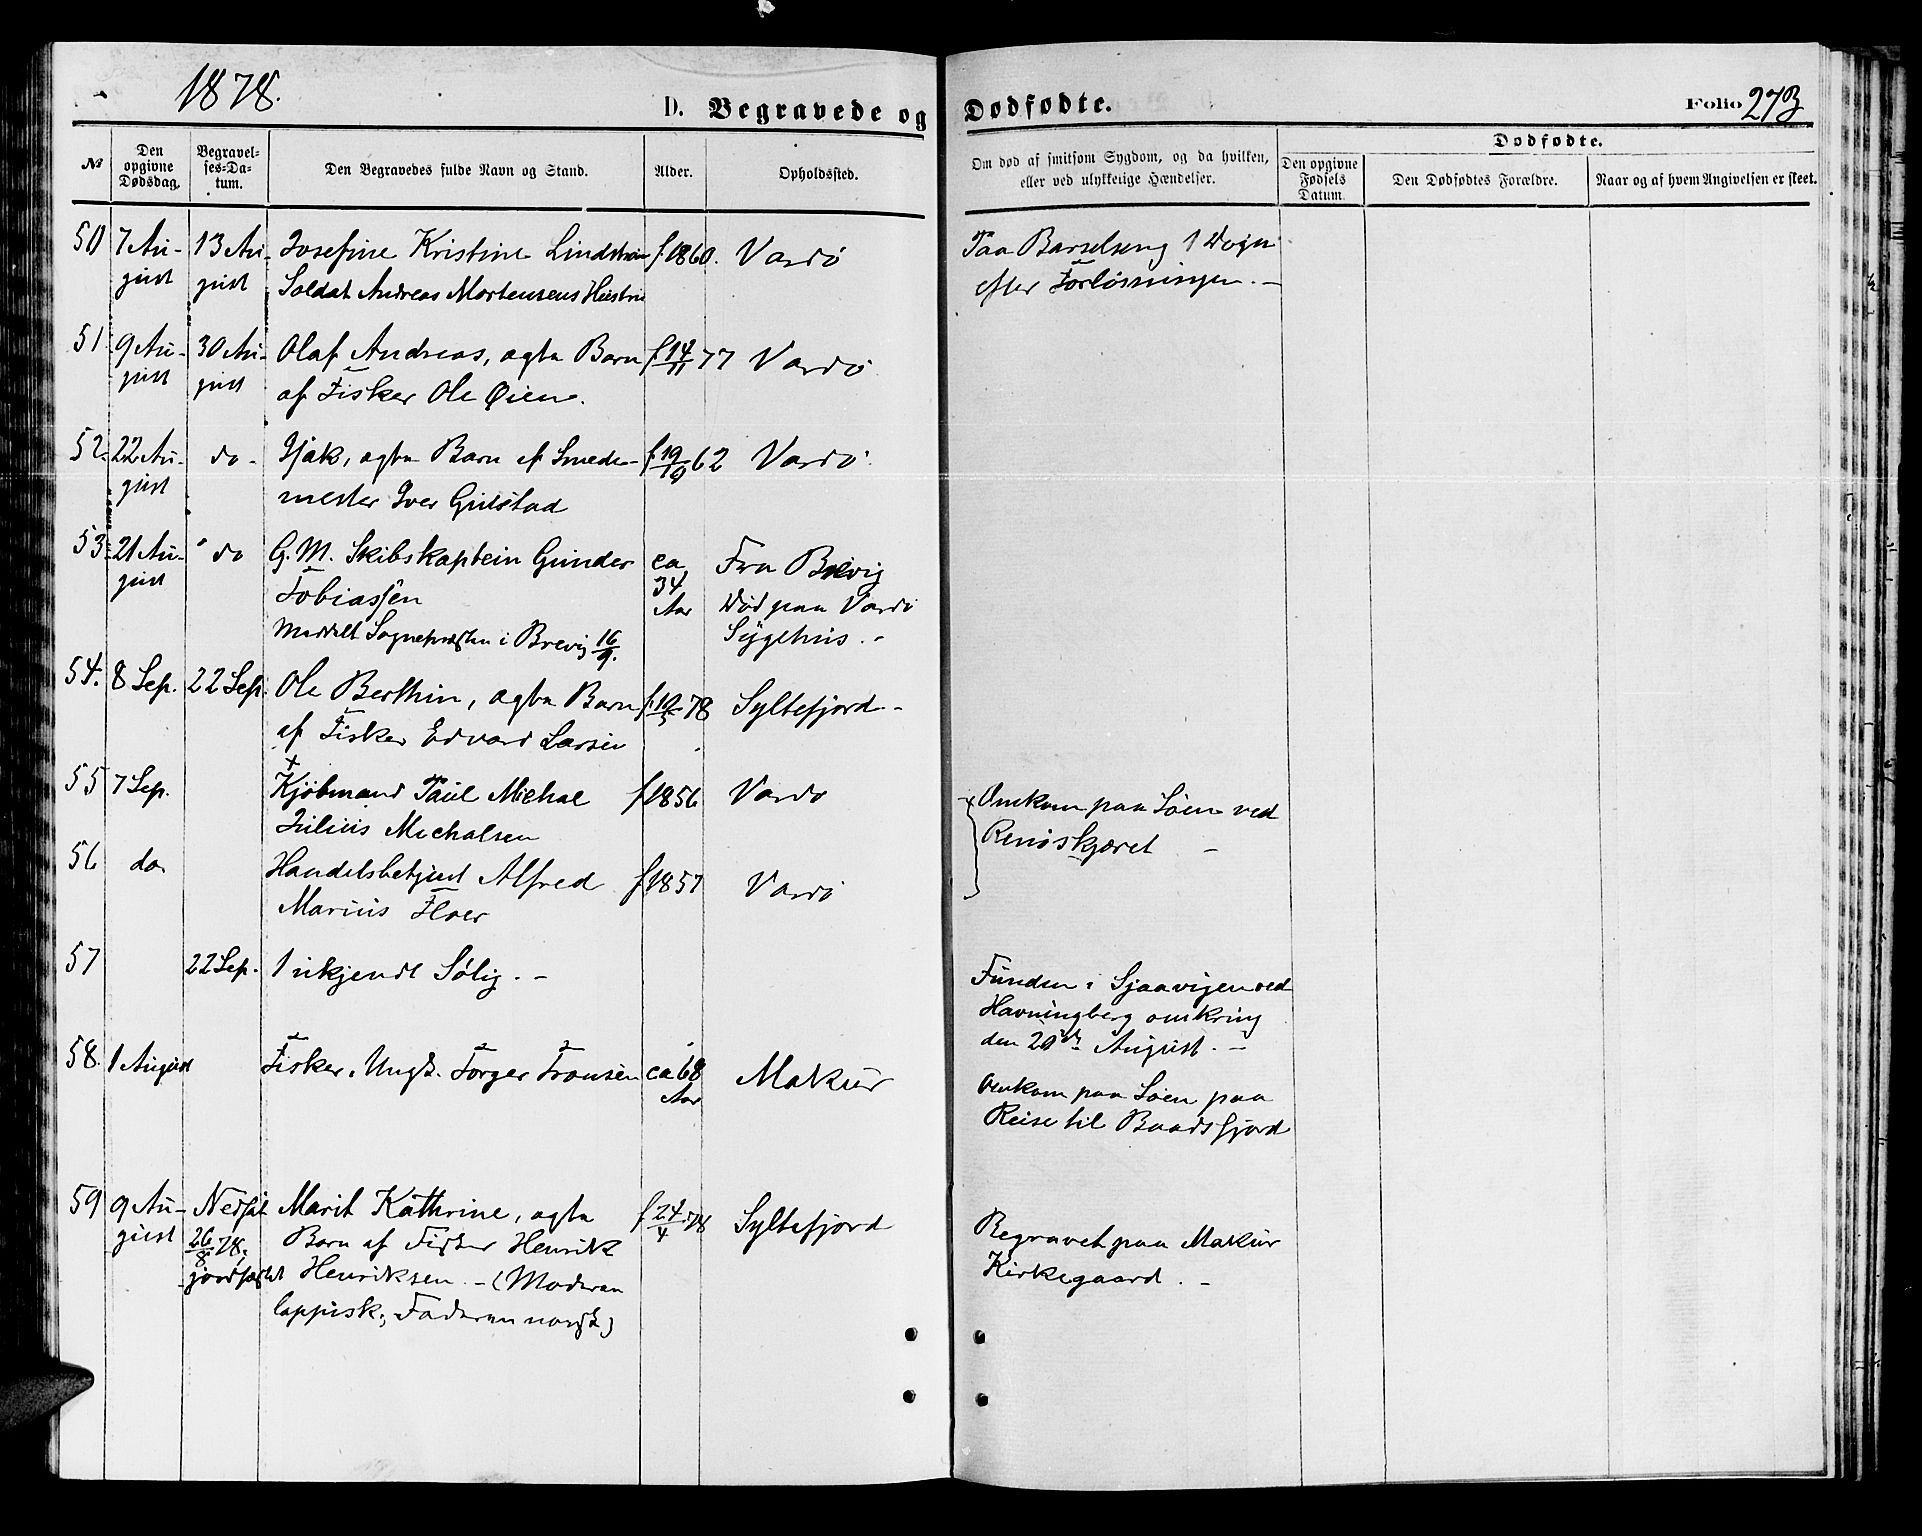 1878.
D. Begravede og Dødfødte.
Folio 273
№
Den opgivne Dødsdag.
Begravelses-Datum.
Den Begravedes fulde Navn og Stand.
Alder.
Opholdssted.
Om død af smitsom Sygdom, og da hvilken, eller ved ulykkelige Hændelser.
Dødfødte.
Den opgivne Fødsels Datum.
Den Dødfødtes Forældre.
Naar og af hvem Angivelsen er skeet.
50 7 Au- 13 Au- Josefine Kristine Lindstrøm f. 1860. Vardø Paa Barselseng 1 Døgn
gust gust Soldat Andreas Mortensens Hustru efter Forløsningen. –
51 9 Au- 30 Au- Olaf Andreas, ægte Barn f. 14/11 77 Vardø
gust gust af Fisker Ole Øien.
52. 22 Au- do - Isak, ægte Barn af Smede- f. 19/9 62 Vardø.
gust mester Iver Gulstad
53 21 Au- do G. M. Skibskaptein Gunder ca Fra Brevig
gust Tobiassen 34 Aar Død paa Vardø
Meddelt Sognepresten i Brevig 16/9. Sygehus. -
54. 8 Sep. 22 Sep. Ole Berthin, ægte Barn f. 19/5 78 Syltefjord -
af Fisker Edvard Larsen
55 7 Sep. Kjøbmand Paul Michal f 1856 Vardø Omkom paa Søen ved
Julius Michalsen Renøskjæret –
56 do. Handelsbetjent Alfred f 1857 Vardø
Marius Floer
57 22 Sep. 1 ukjendt Sølig. – Funden i Sjaavigen ved
Havningberg omkring
den 20de August. –
58. 1 August Fisker, Ungk. Torger Tronsen ca 68 Makur Omkom paa Søen paa
Aar Reise til Baadsfjord
59 9 Au- Nedsat Marit Kathrine, ægte f 24/4 78 Syltefjord Begravet paa Makur
gust 26/8 78. Barn af Fisker Henrik Kirkegaard. –
jordfæstet Henriksen. – (Moderen
lappisk, Faderen norsk)